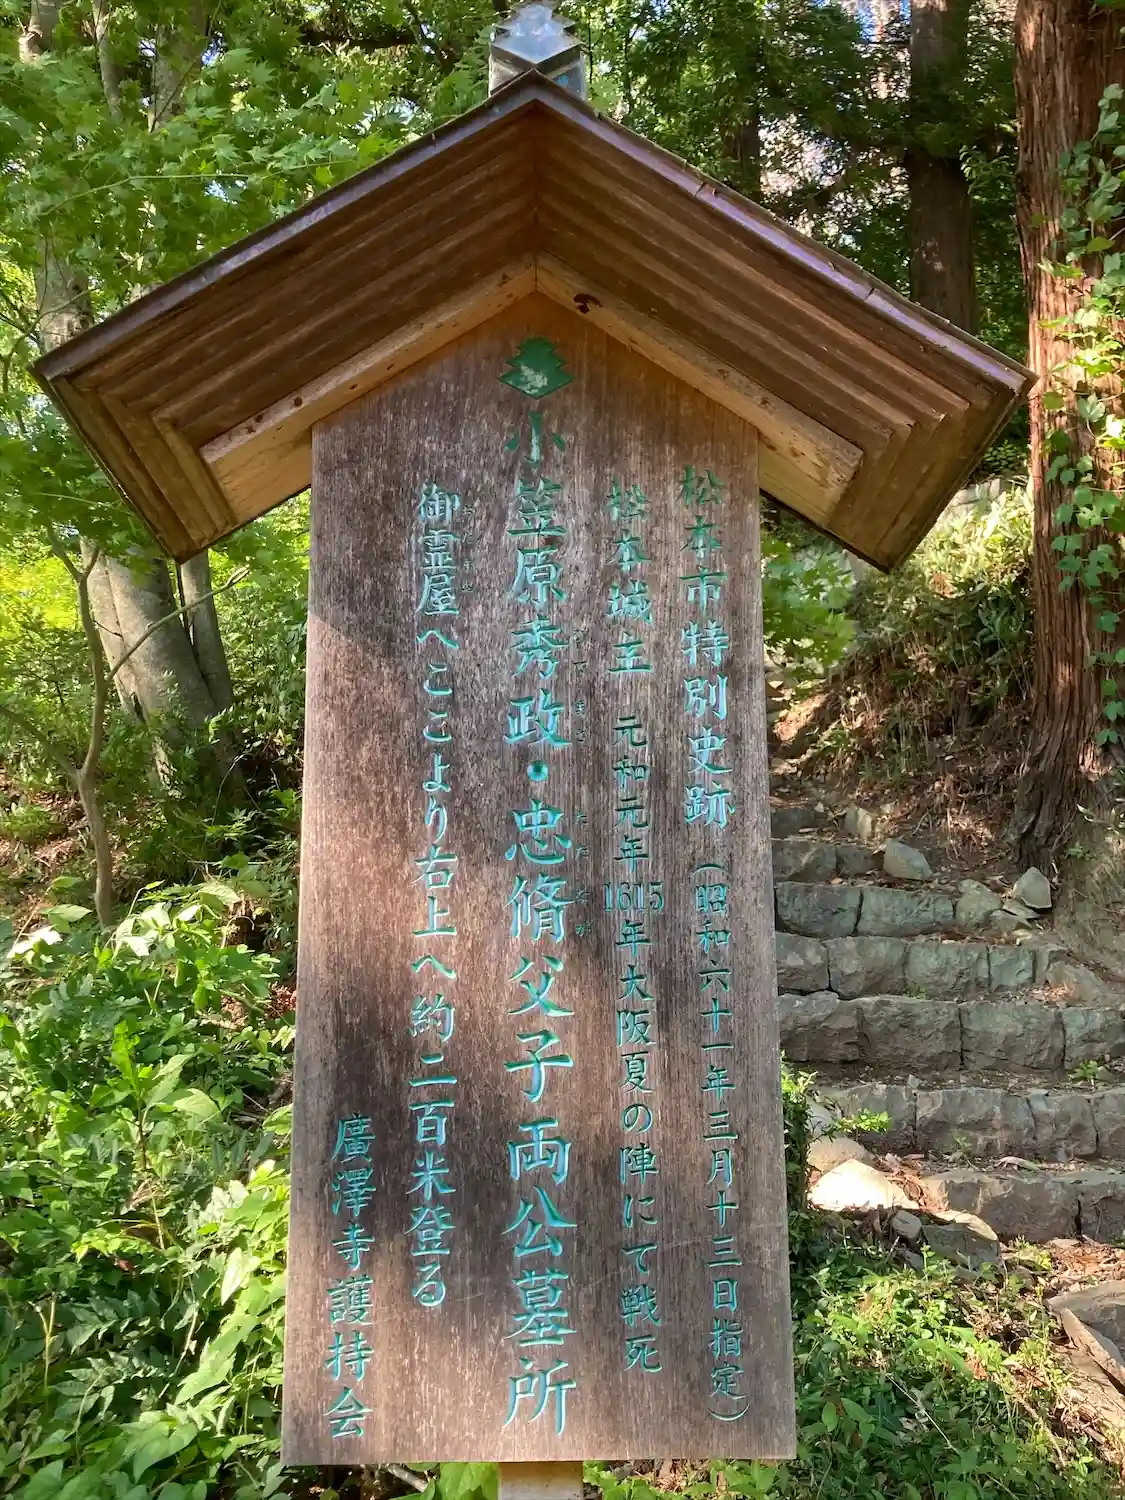 松本市特別史跡（昭和六十一年三月十三日指定）
松本城主 元和元年1615年大阪夏の陣にて戦死
小笠原秀政・忠脩父子両公墓所
ひでまさ ただなが
御霊屋へここより右上へ約二百米登る
おたまや
廣澤寺護持会